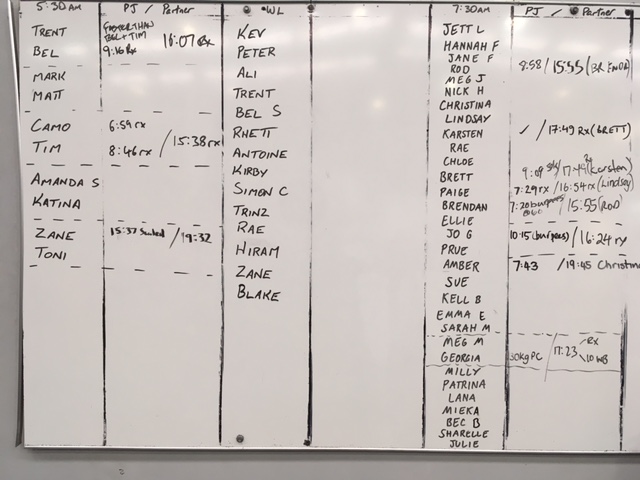 5:30AM PJ / Partner
TRENT FASTER THAN BEL + TIM 16:07 Rx
BEL 9:16 Rx
MARK
MATT
CAMO 6:59 rx
TIM 8:46 rx / 15:38 rx
AMANDA S
KATINA
ZANE 15:37 / 19:32
TONI
WL
KEV
PETER
ALI
TRENT
BEL S
RHETT
ANTOINE
KIRBY
SIMON C
TRINZ
RAE
HIRAM
ZANE
BLAKE
7:30AM PJ / Partner
JETT L
HANNAH F
JANE F
ROD 8:58 / 15:55 (BRENDA
MEG J
NICK H
CHRISTINA
LINDSAY
KARSTEN ✓ / 17:49 Rx (BRETT)
RAE
CHLOE
BRETT 9:09 / 17:49 (Karsten)
PAIGE 7:29 rx / 16:54 rx (Lindsey)
BRENDAN 7:20 burpees / 15:55 (ROD)
ELLIE
JO G 10:15 (burpees) / 16:24 ry
PRUE
AMBER 7:43 / 19:45 Christina
SUE
KELL B
EMMA E
SARAH M
MEG M
GEORGIA 30kg PC / 17:23 Rx 10 WB
MILLY
PATRINA
LANA
MIEKA
BEC B
SHARELLE
JULIE